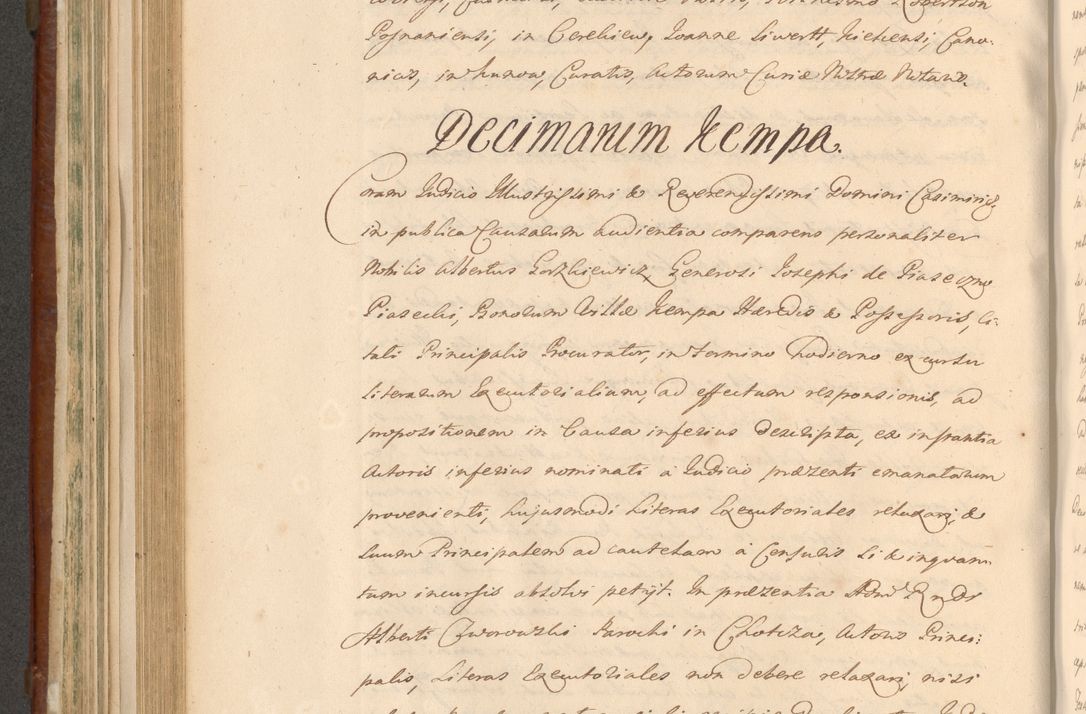 Posnaniensi, in Cerekiew, Joanne Siwertt, Kielcensi, Cano-
nicis, in Curatis, Actorum Curiæ Nostræ Notario.
Decimarum Kempa.
Coram Judicio Illustrissimi & Reverendissimi Domini Casimiri &
in publica Causarum Audientia comparens personaliter
Nobilis Albertus Gorzkiewicz Generosi Josephi de Piaseczno
Piasecki, Bonorum Villæ Kempa Hæredis & Possessoris, Ci-
tati Principalis Procurator, in termino hodierno ex cursu
Literarum Executorialium, ad effectum responsionis, ad
propositionem in Causa inferius descripta, ex instantia
Actoris inferius nominati à Judicio præzenti emanatarum
provenienti, hujusmodi Literas Executoriales relaxari, &
suum Principalem ad cautelam à Censuris si & inquan-
tum incursis absolvi petijt. In præzentia Admo Rndi
Alberti Zworowski Parochi in Chotcza, Actoris Princi-
palis, Literas Executoriales non debere relaxari, nisi